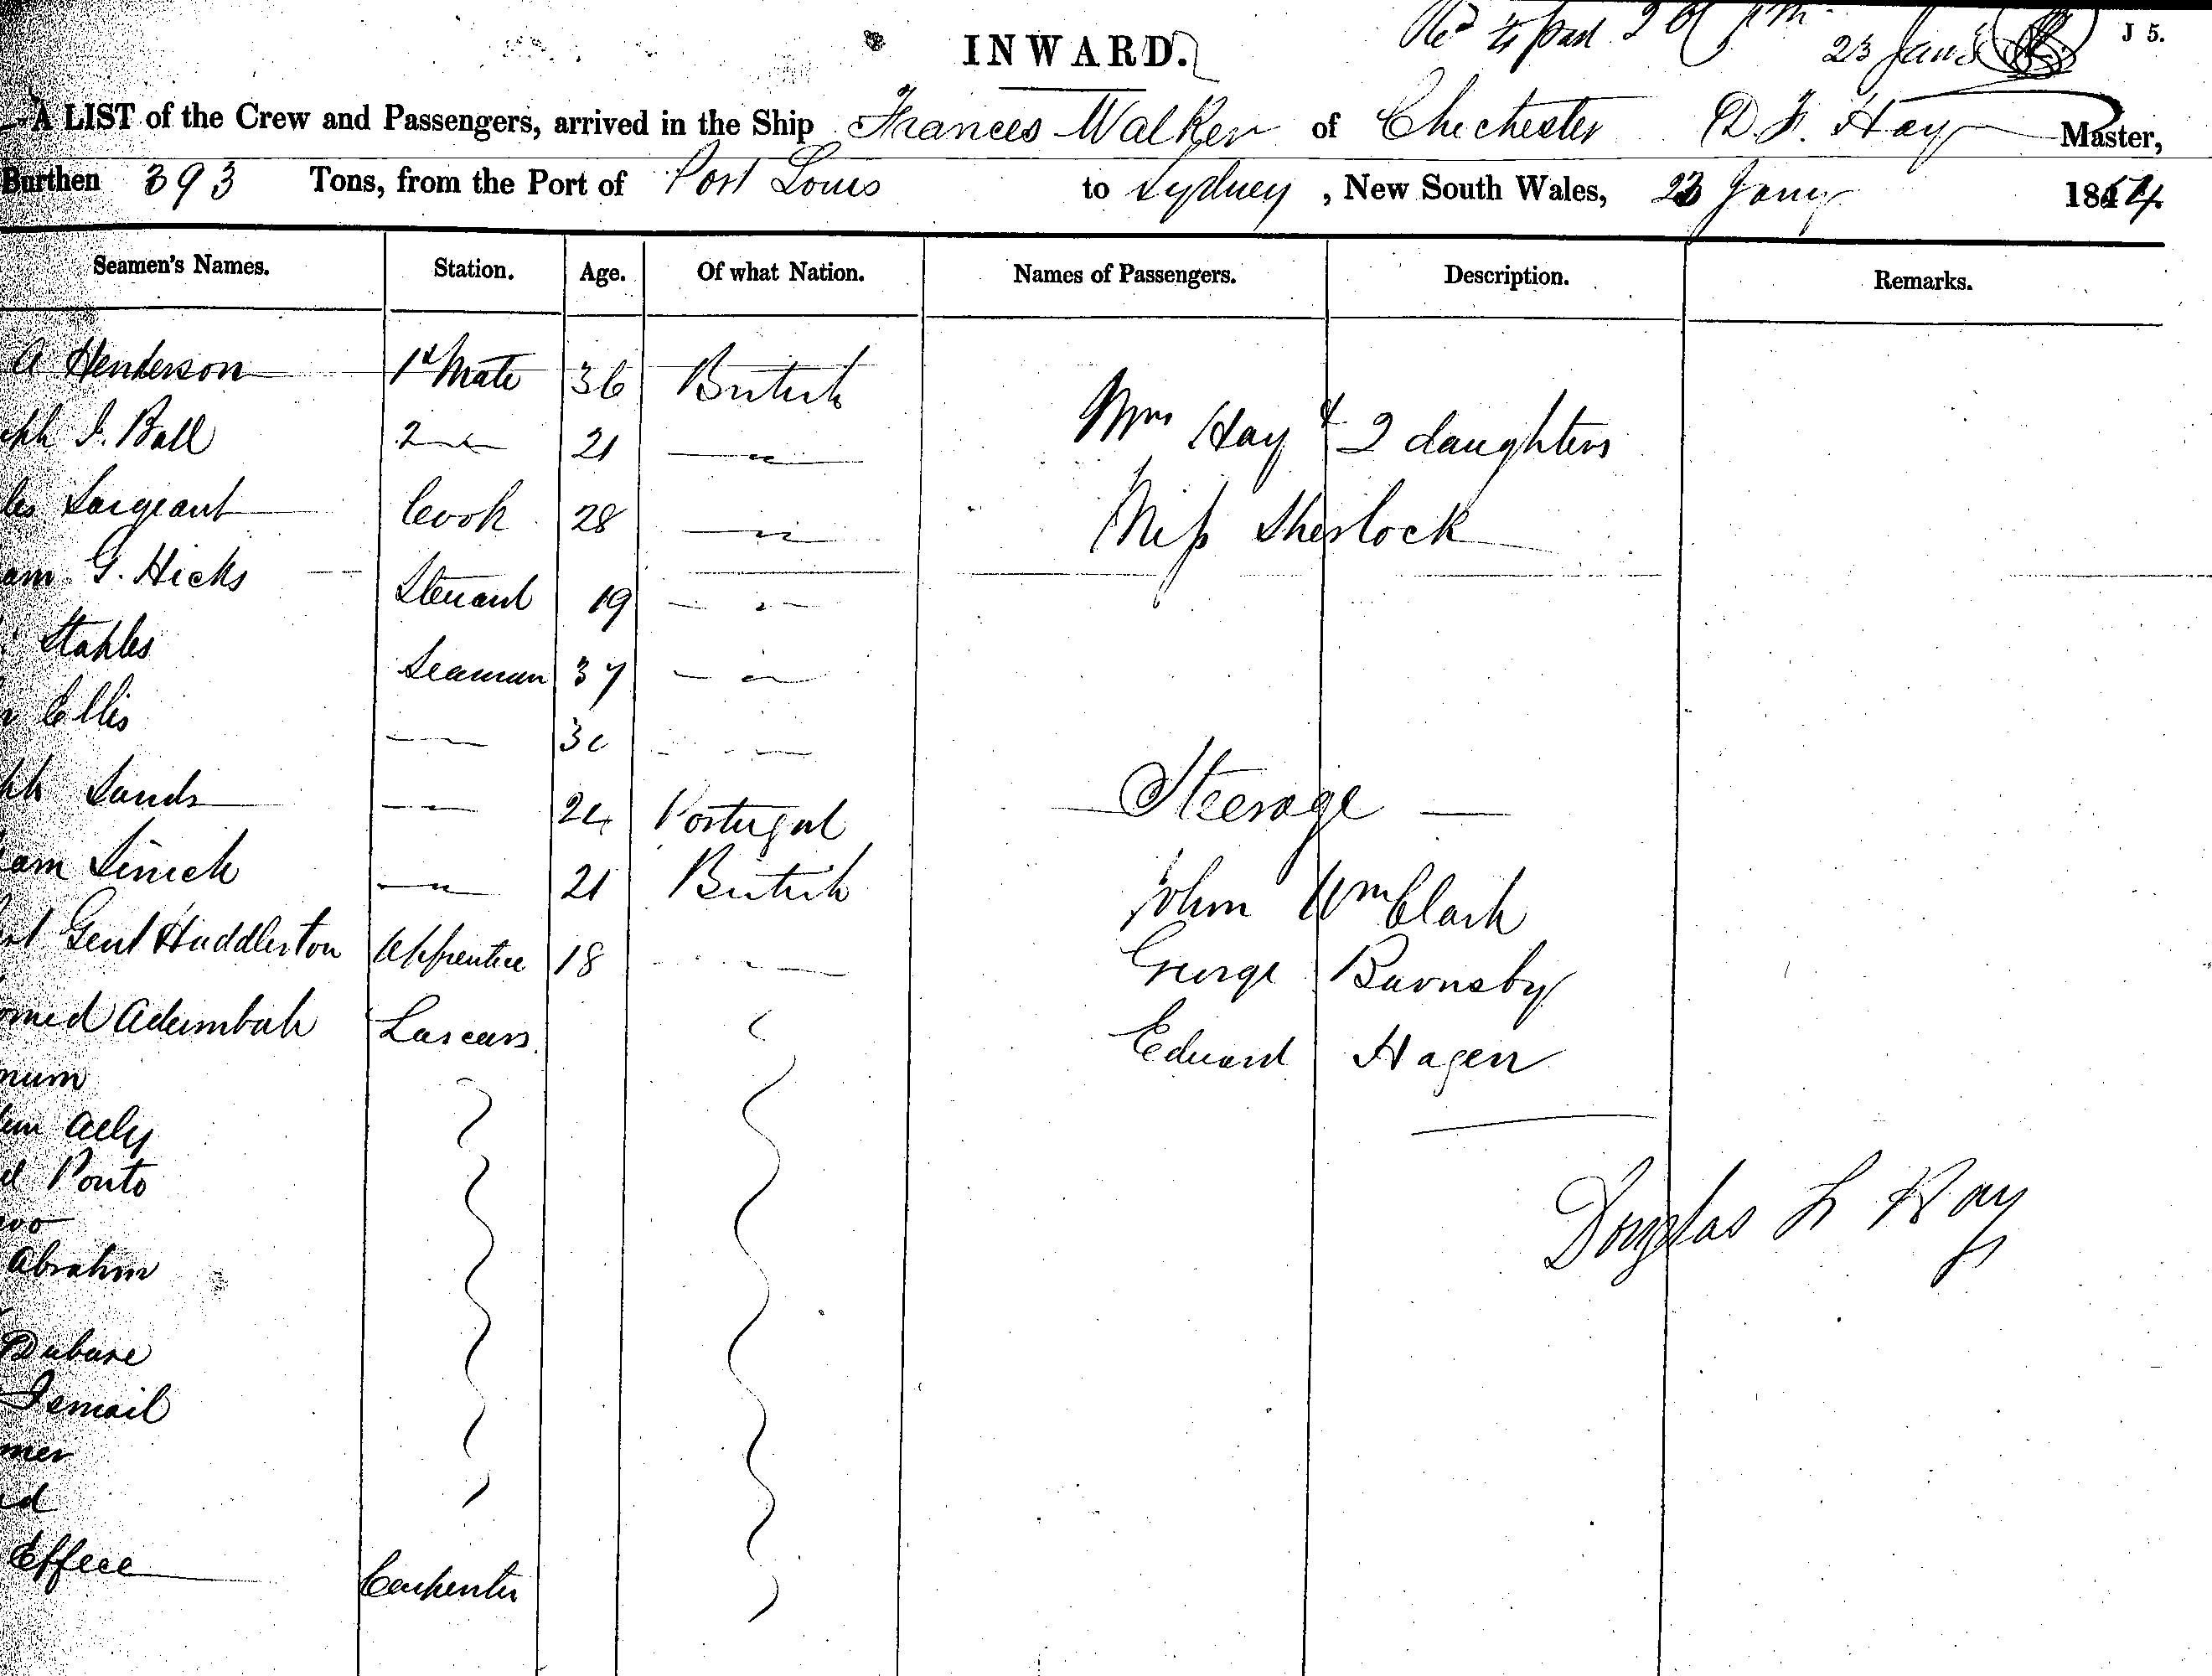 INWARD.
J 5.
23 Jan
A LIST of the Crew and Passengers, arrived in the Ship Frances Walker of Chichester D. F. Hay Master,
Burthen 393 Tons, from the Port of Port Louis to Sydney, New South Wales, 23 Jany 1854
Seamen's Names. Station. Age. Of what Nation. Names of Passengers. Description. Remarks.
A Henderson 1st Mate 36 British
Mrs Hay & 2 daughters
J. Ball 2 21 "
Sargeant Cook 28 "
Miss Sherlock
am G. Hicks Steward 19 "
Staples Seaman 37 "
Ellis " 30 "
Sands " 24 Portugal
Steerage
am Sinick " 21 British
John Wm Clark
Gent Huddleston Apprentice 18 "
George Barnsby
omed Adumbah Lascars
Edward Hagen
num
Ally
Ponto
Douglas F Hay
Abrahim
Dubare
Ismail
mer
Effece Carpenter